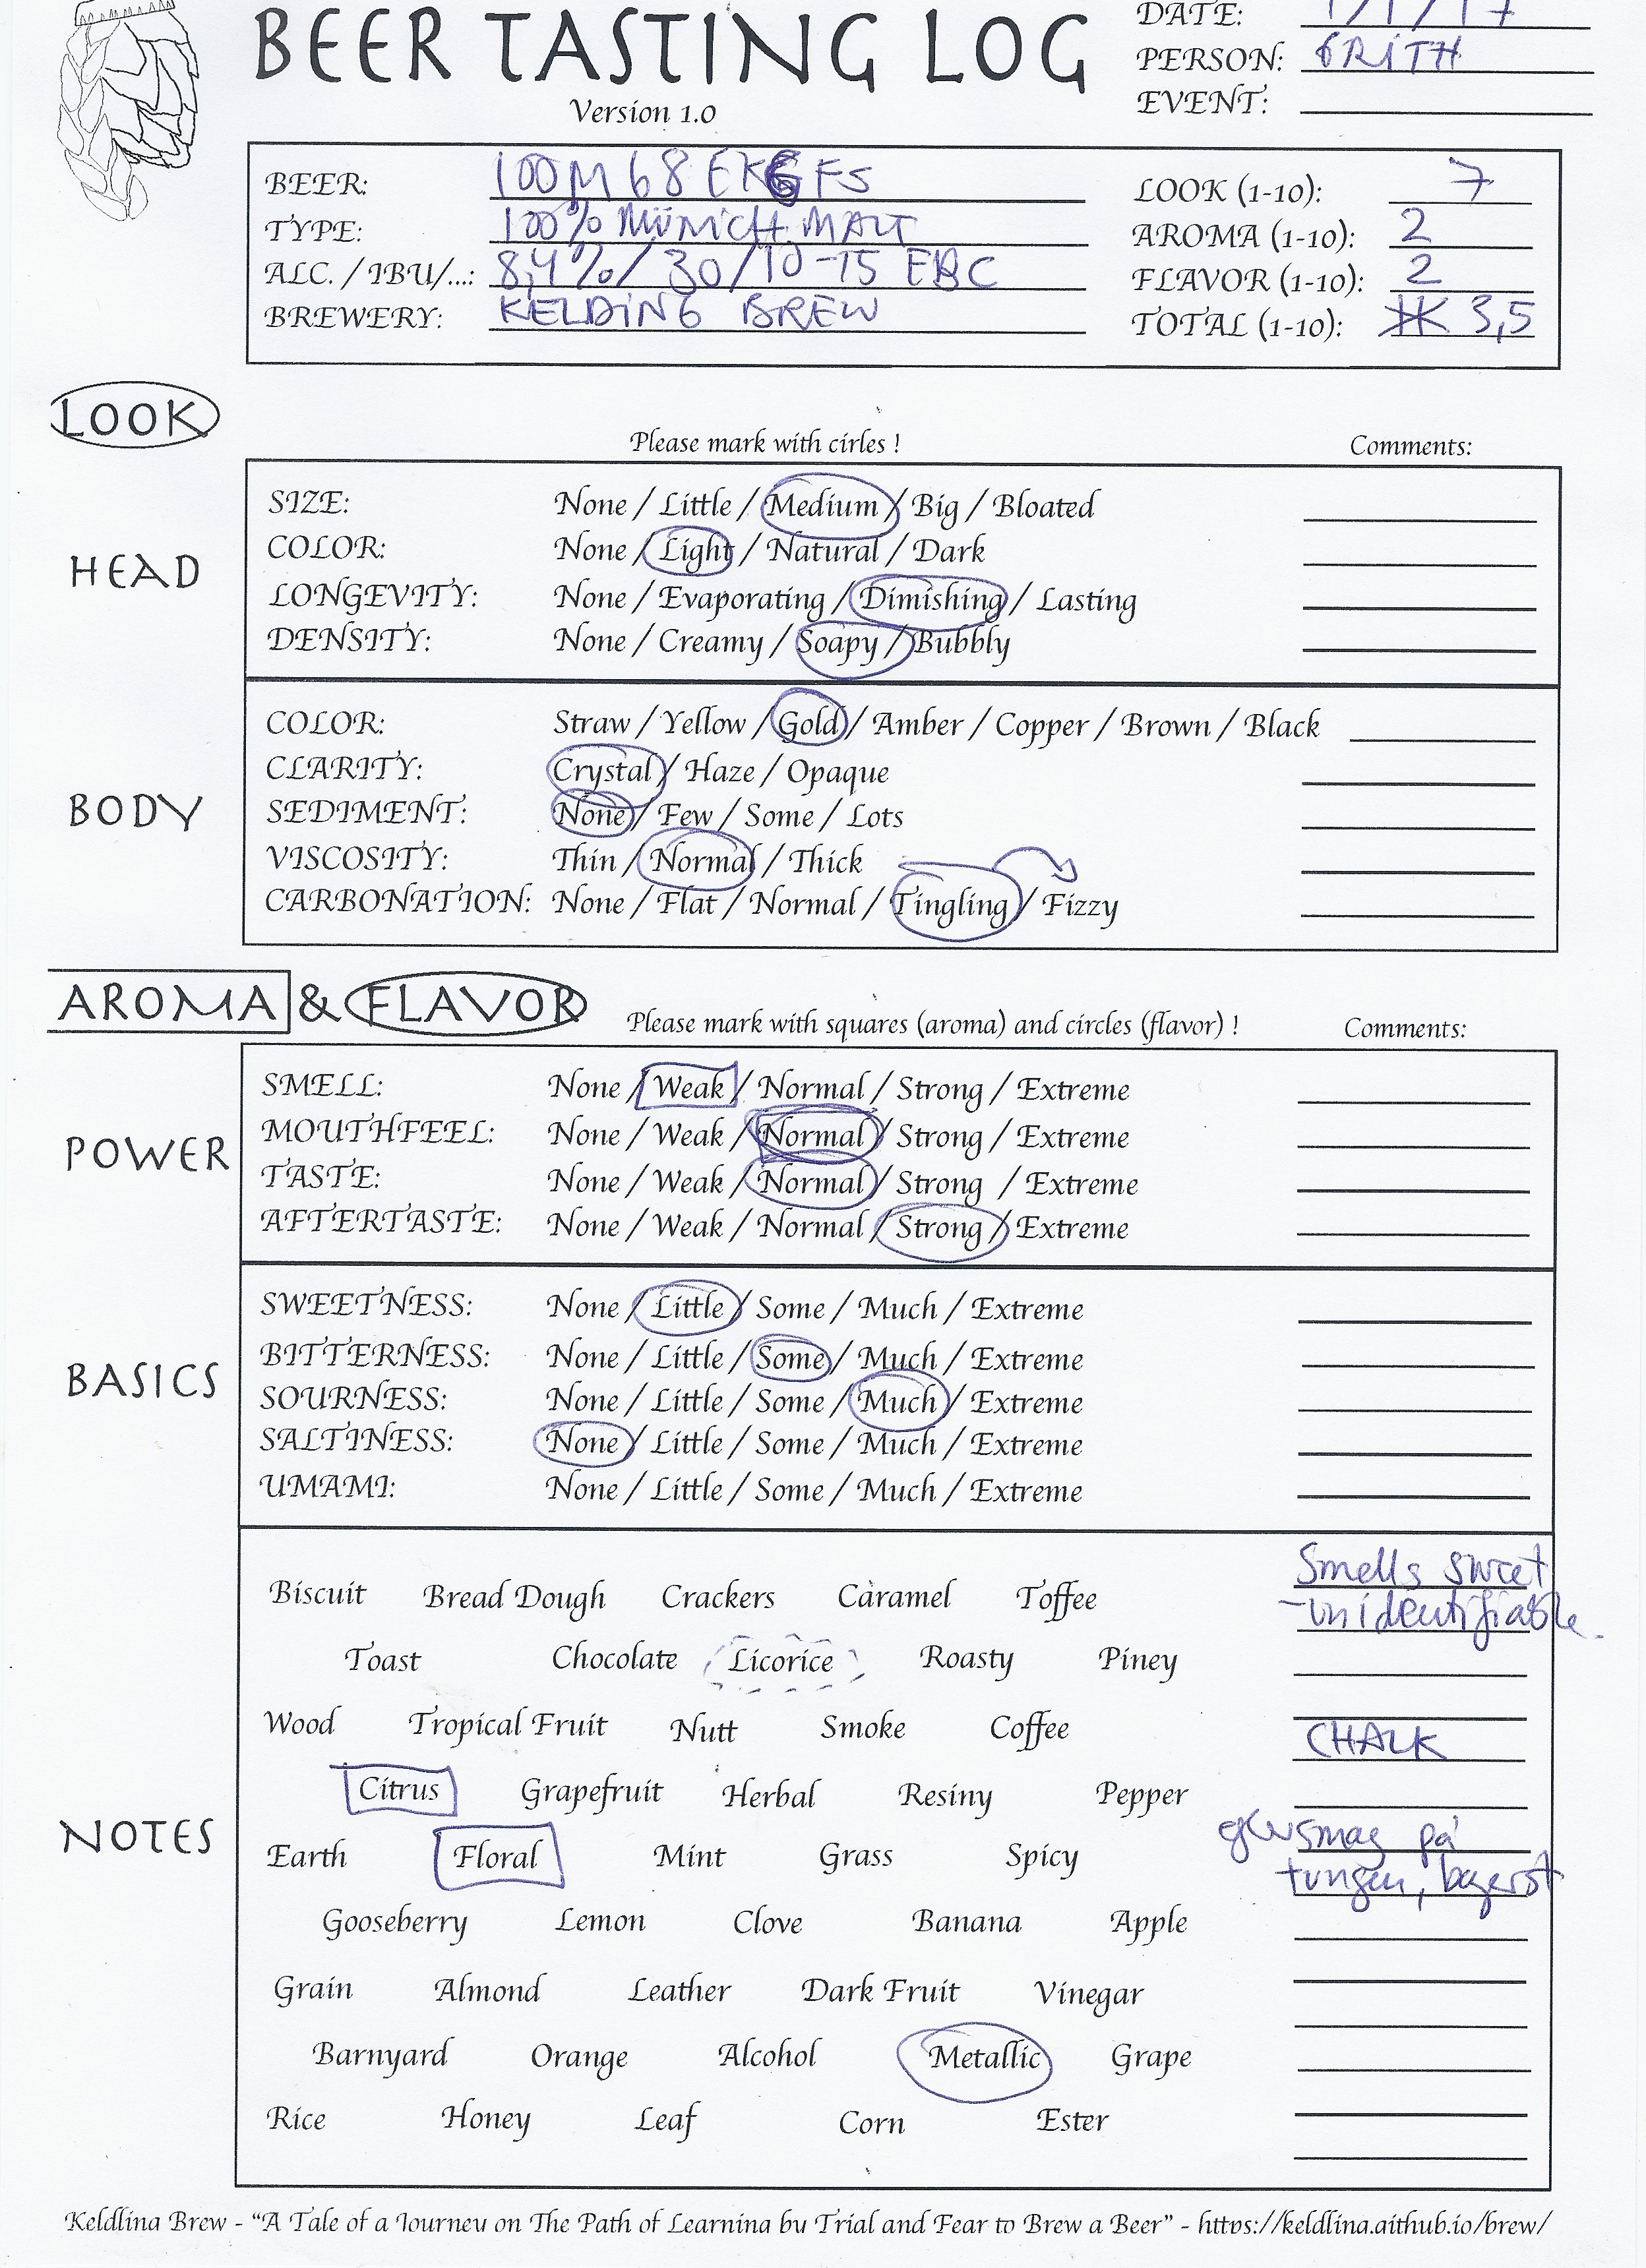 BEER TASTING LOG
Version 1.0
DATE: 1/1/17
PERSON: GRITH
EVENT:
BEER: 100M68EKGFS
TYPE: 100% MÜNICH MALT
ALC. / IBU/...: 8,4%/30/10-15 EBC
BREWERY: KELDING BREW
LOOK (1-10): 7
AROMA (1-10): 2
FLAVOR (1-10): 2
TOTAL (1-10): 3,5
LOOK
Please mark with cirles !
Comments:
HEAD
SIZE: None / Little / Medium / Big / Bloated
COLOR: None / Light / Natural / Dark
LONGEVITY: None / Evaporating / Dimishing / Lasting
DENSITY: None / Creamy / Soapy / Bubbly
BODY
COLOR: Straw / Yellow / Gold / Amber / Copper / Brown / Black
CLARITY: Crystal / Haze / Opaque
SEDIMENT: None / Few / Some / Lots
VISCOSITY: Thin / Normal / Thick
CARBONATION: None / Flat / Normal / Tingling / Fizzy
AROMA & FLAVOR
Please mark with squares (aroma) and circles (flavor) !
Comments:
POWER
SMELL: None / Weak / Normal / Strong / Extreme
MOUTHFEEL: None / Weak / Normal / Strong / Extreme
TASTE: None / Weak / Normal / Strong / Extreme
AFTERTASTE: None / Weak / Normal / Strong / Extreme
BASICS
SWEETNESS: None / Little / Some / Much / Extreme
BITTERNESS: None / Little / Some / Much / Extreme
SOURNESS: None / Little / Some / Much / Extreme
SALTINESS: None / Little / Some / Much / Extreme
UMAMI: None / Little / Some / Much / Extreme
NOTES
Biscuit Bread Dough Crackers Caramel Toffee
Toast Chocolate Licorice Roasty Piney
Wood Tropical Fruit Nutt Smoke Coffee
Citrus Grapefruit Herbal Resiny Pepper
Earth Floral Mint Grass Spicy
Gooseberry Lemon Clove Banana Apple
Grain Almond Leather Dark Fruit Vinegar
Barnyard Orange Alcohol Metallic Grape
Rice Honey Leaf Corn Ester
Smells sweet
-unidentifiable.
CHALK
på
tungen, bagerst
Keldling Brew - "A Tale of a Journey on The Path of Learning by Trial and Fear to Brew a Beer" - https://keldling.github.io/brew/